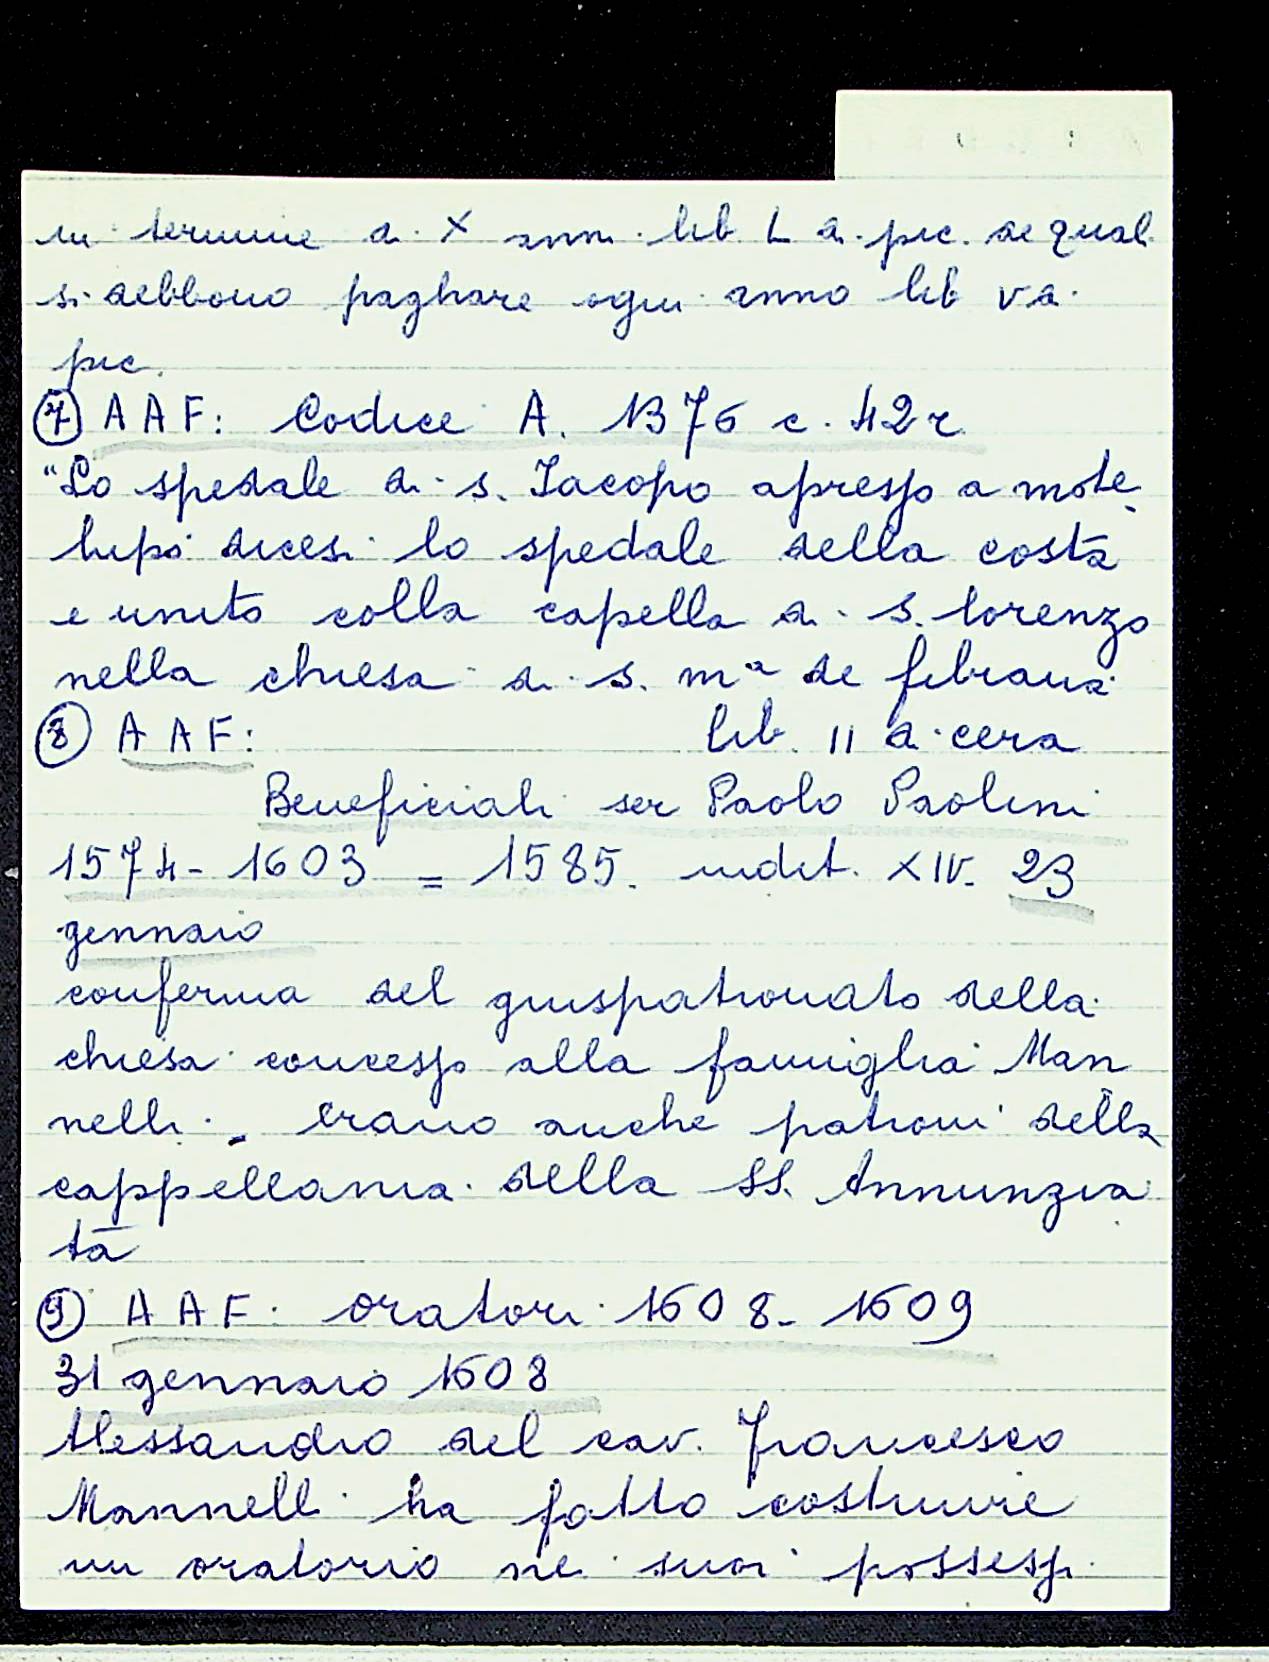 in termine di X anni lib. L di pic. de quali
si debbono paghare ogni anno lib v di
pic.
⑦ AAF: Codice A. 1376 c. 42r
"Lo spedale di s. Iacopo apresso a mote
lupo dicesi lo spedale della costa
e unito colla capella di s. lorenzo
nella chiesa di s. mª de fibiana
⑧ AAF: lib. II di cera
Beneficiali ser Paolo Paolini
1574-1603 = 1585. indit. XIV. 23
gennaio
conferma del giuspatronato della
chiesa concesso alla famiglia Man
nelli. Erano anche patroni della
cappellania della SS. Annunzia
ta
⑨ AAF: oratori 1608-1609
31 gennaio 1608
Alessandro del cav. Francesco
Mannelli ha fatto costruire
un oratorio nei suoi possessi